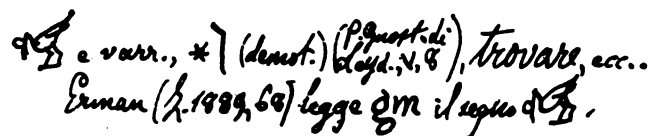 e varr., * (demot.) (P. Gnost. di Leyd., V, 8), trovare, ecc..
Erman (Z. 1889, 68) legge gm il segno .